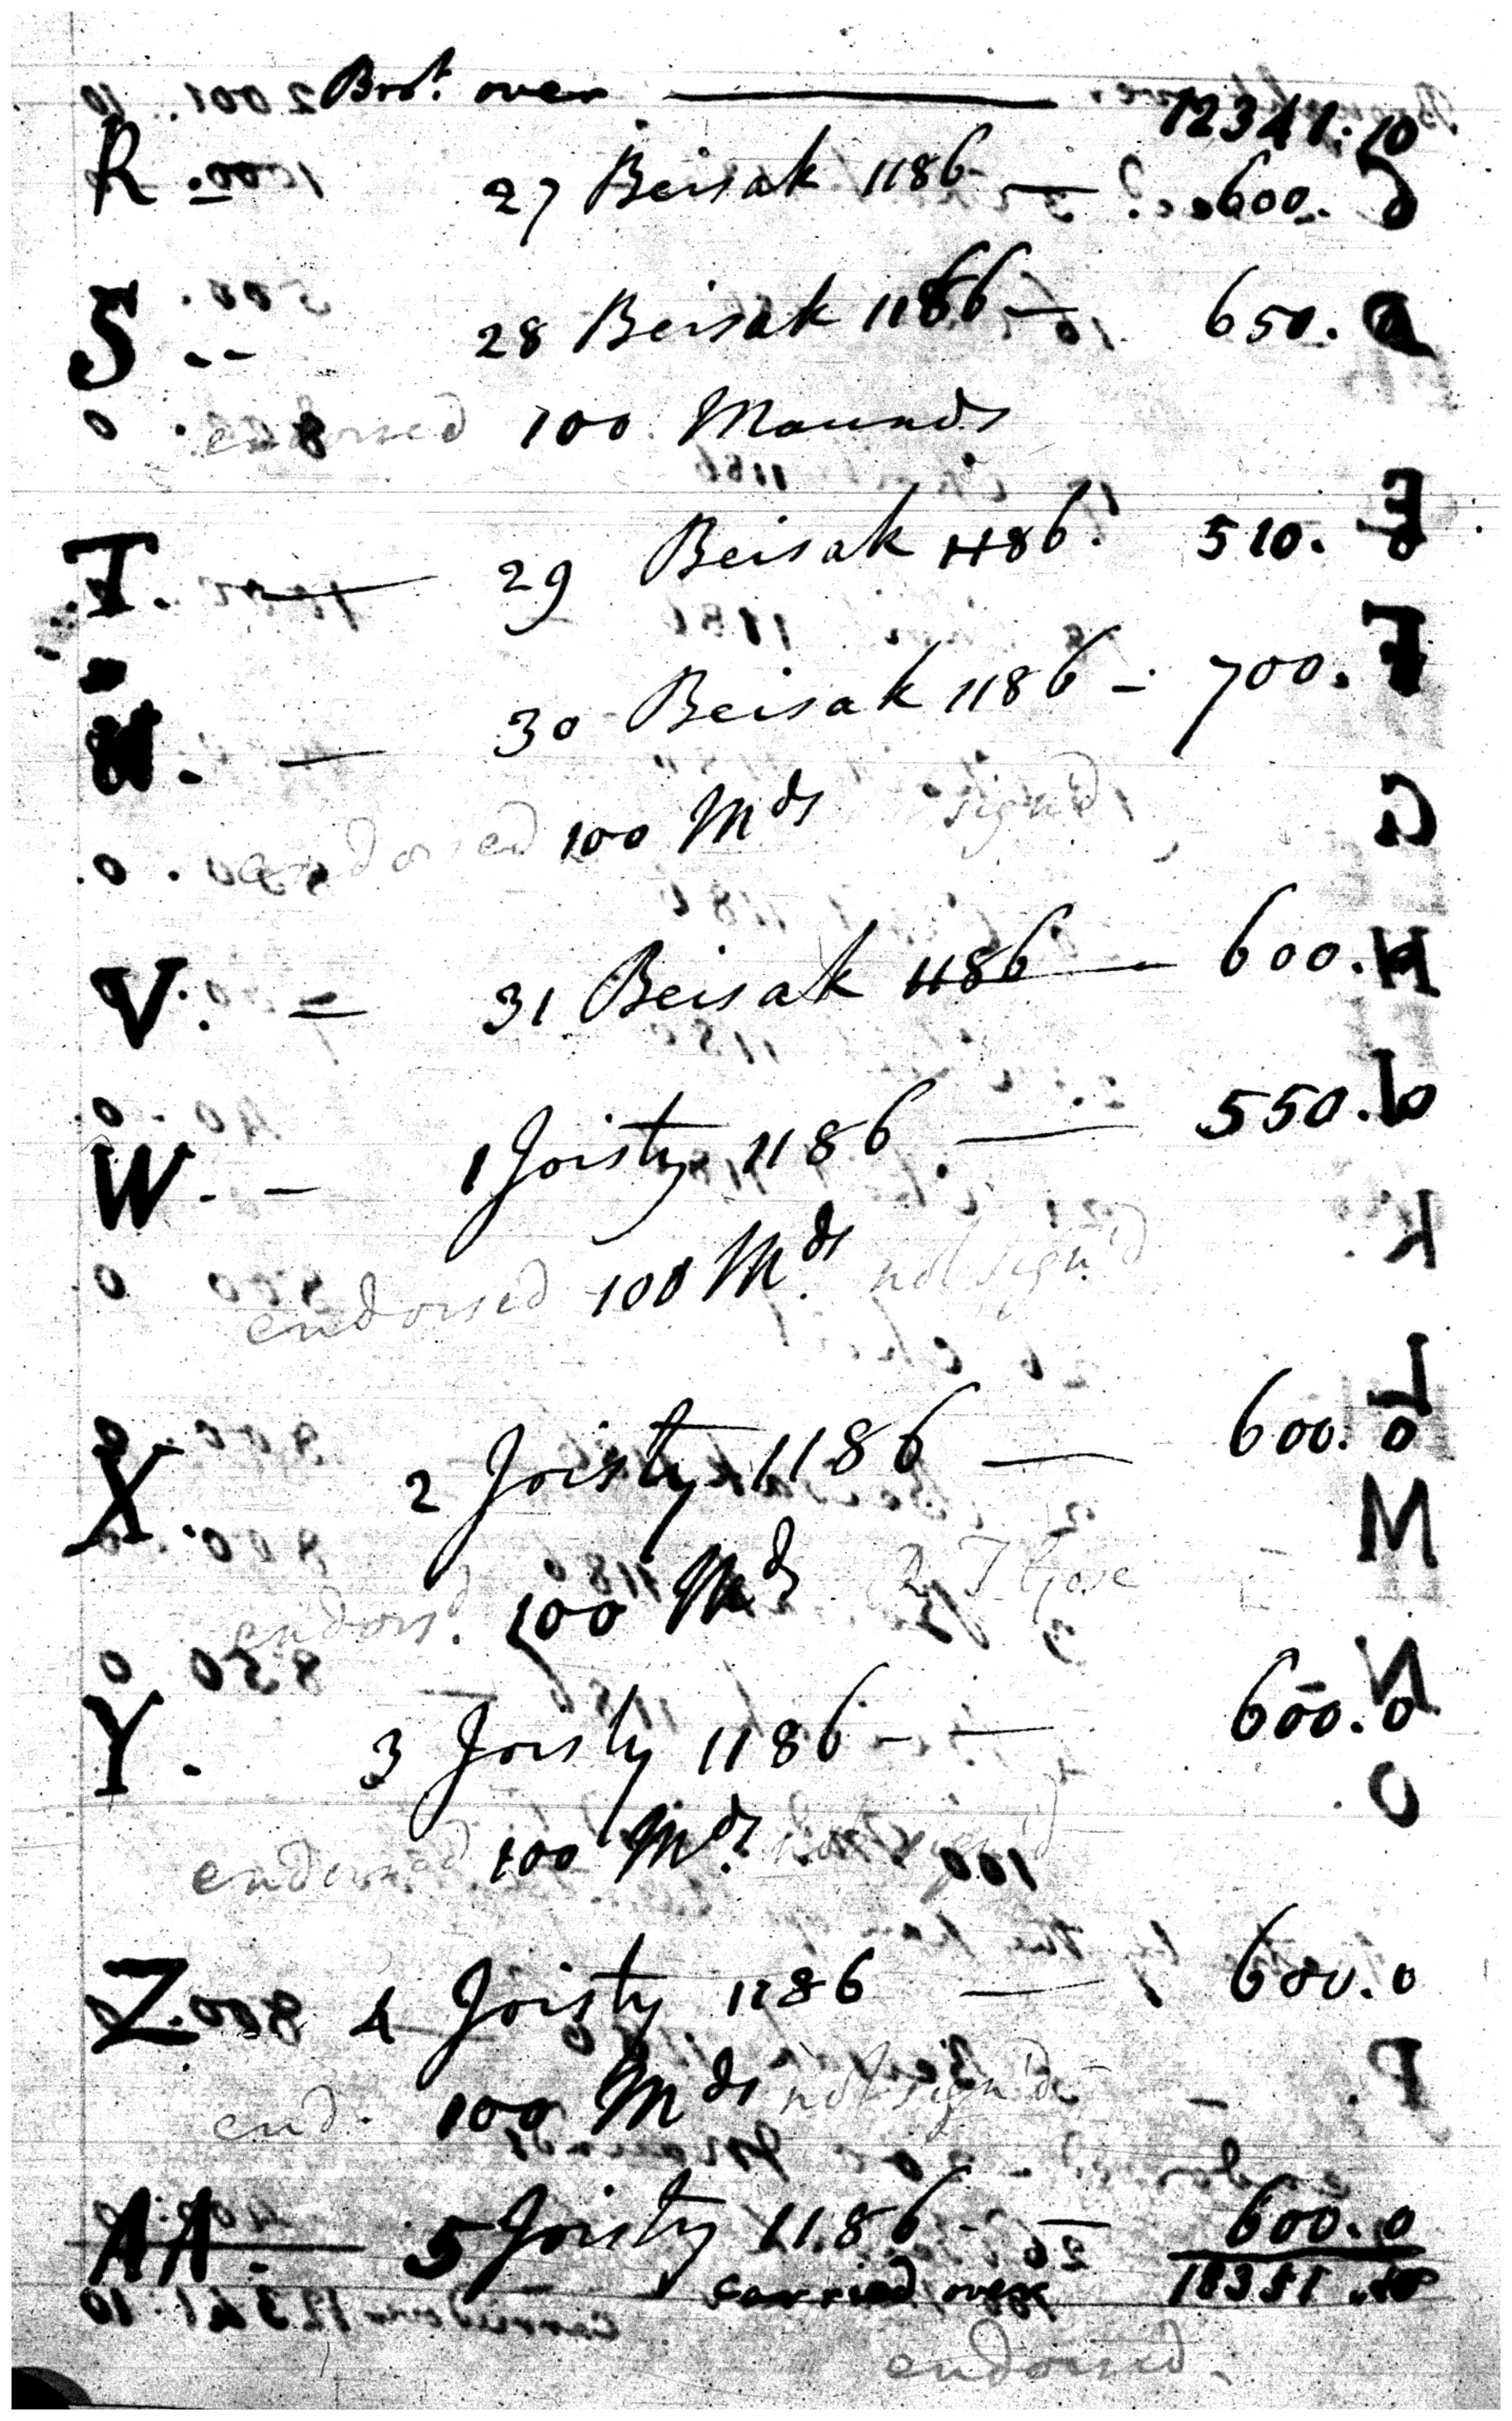 Bro.t over 12341:10
R .. 27 Beisak 1186 — 600. 0
S -- 28 Beisak 1186 — 650. 0
endorsed 100 Maunds
T. — 29 Beisak 1186. 510. 0
U. — 30 Beisak 1186 - 700. 0
endorsed 100 Mds sign'd
V. = 31 Beisak 1186 — 600. 0
W. - 1 Joisty 1186. — 550. 0
endorsed 100 Mds. not sign'd
X. 2 Joisty 1186 — 600. 0
endorsd. 100 Mds
Y. 3 Joisty 1186 - — 600. 0
endorsed 100 Mds.
Z. 4 Joisty 1186 — 600. 0
end. 100 Mds not sign'd
AA. 5 Joisty 1186 - — 600. 0
carried over 18351.10
endorsed.